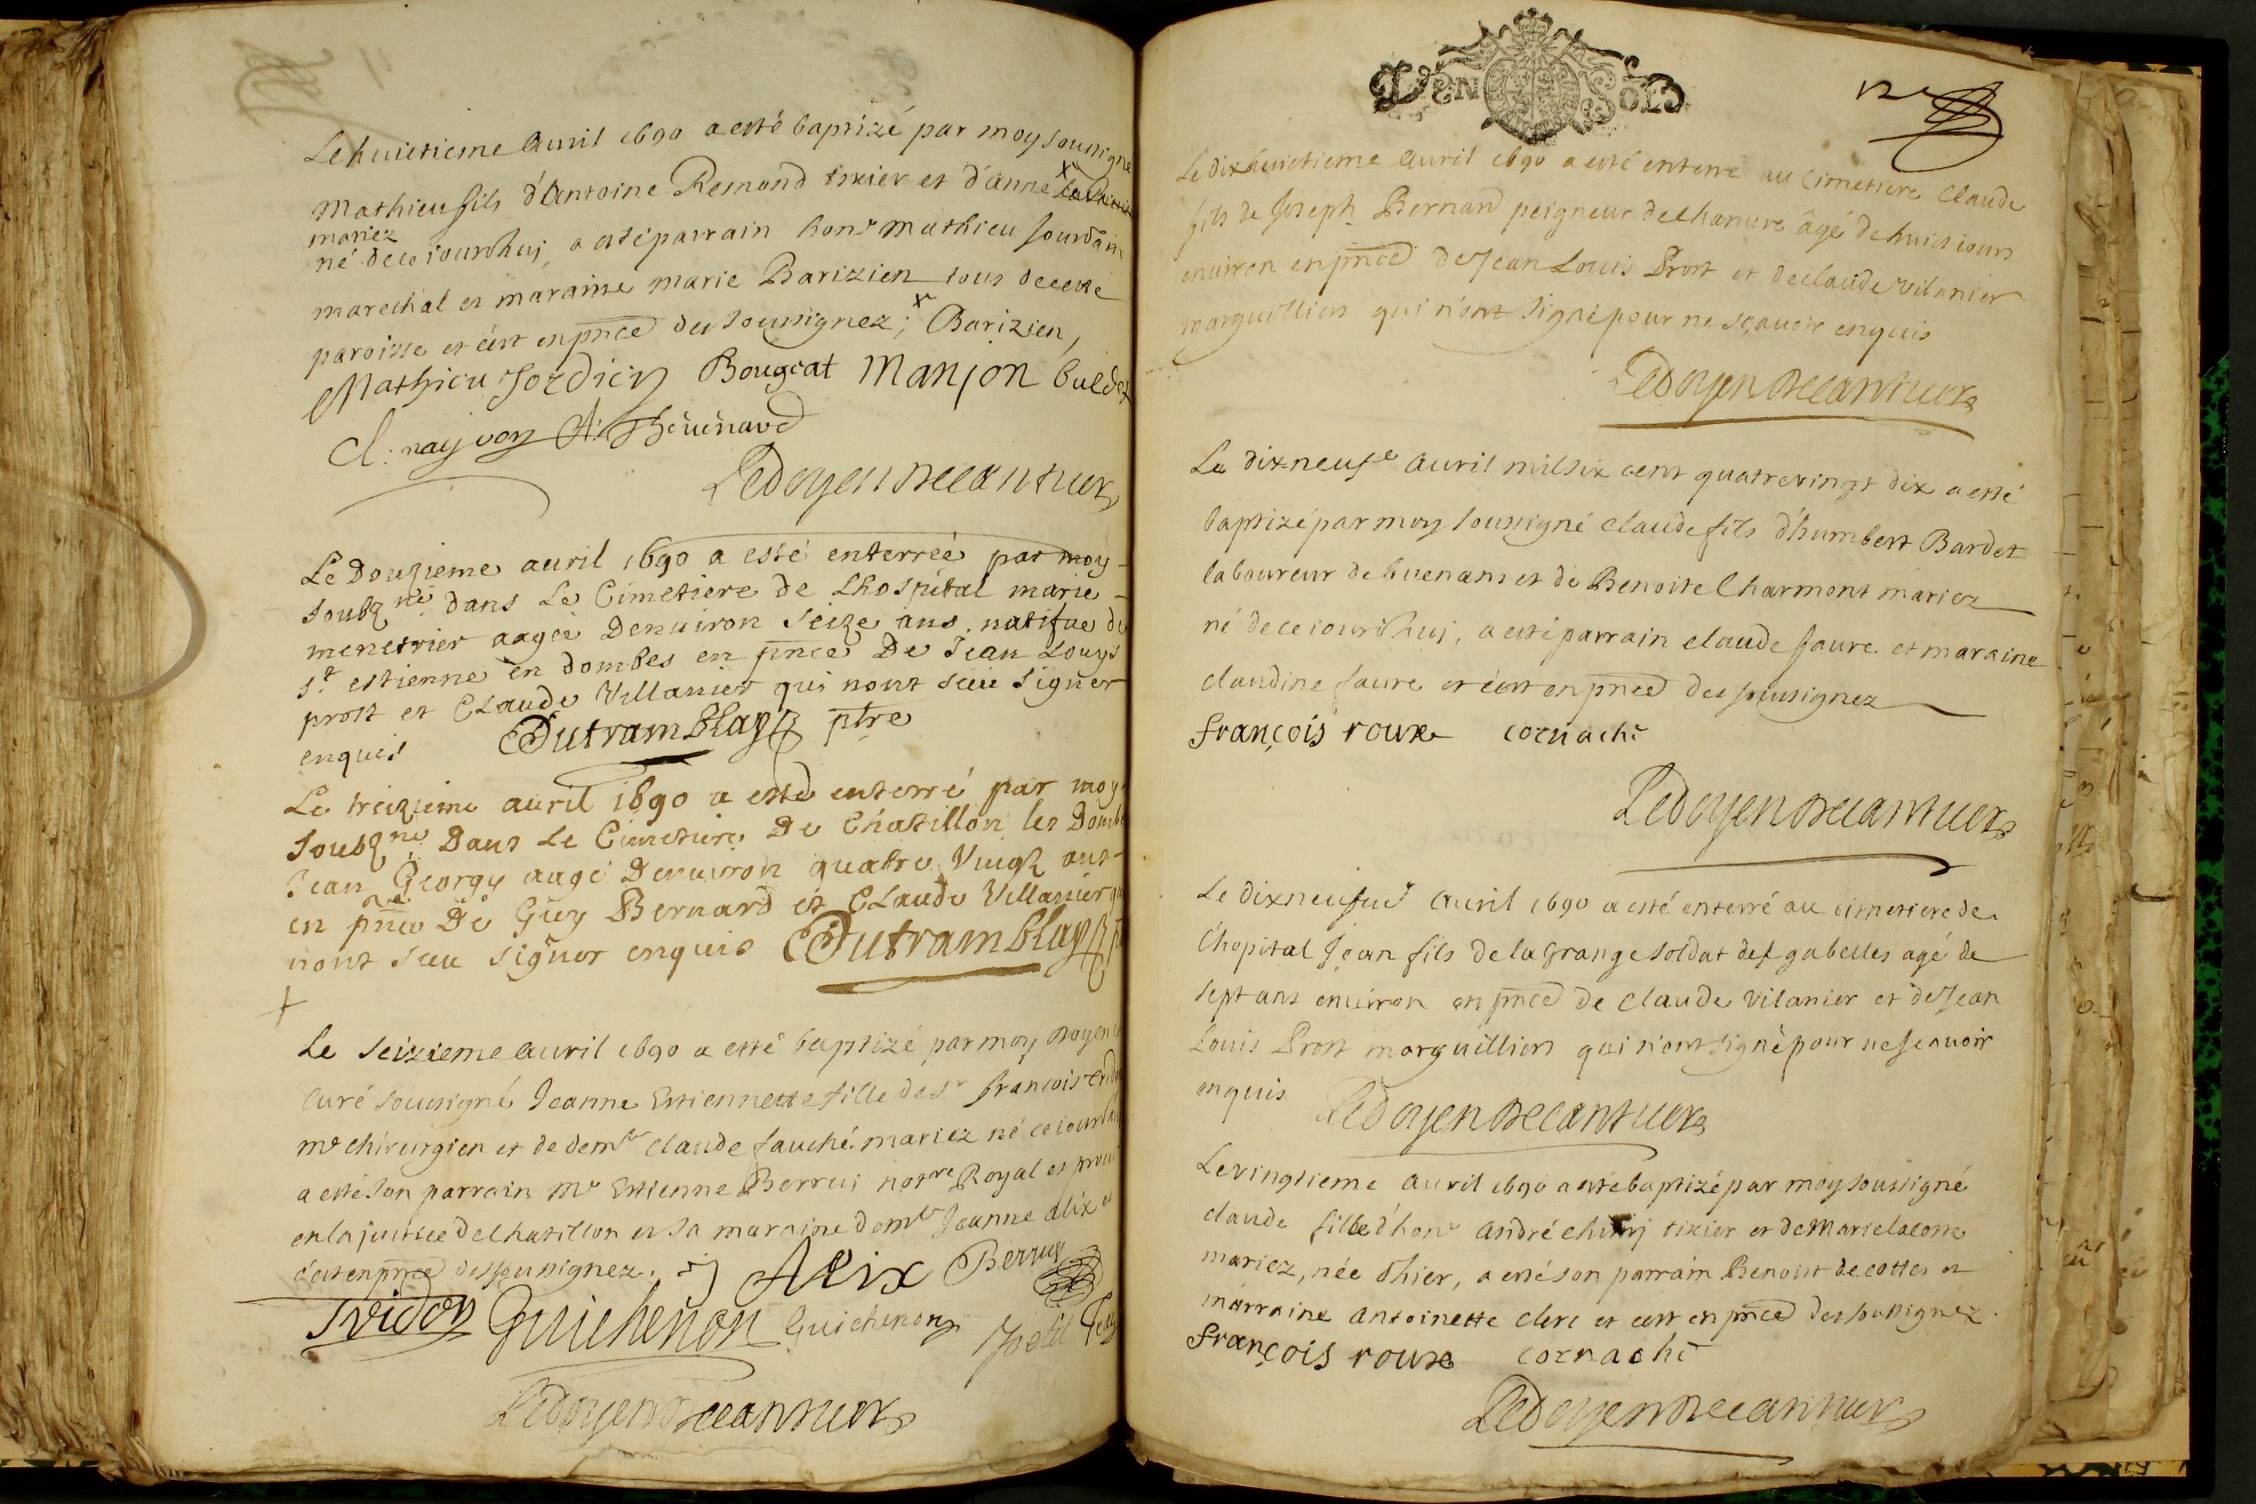 Le huictieme Avril 1690 a esté baptizé par moy soussigné
Mathieu fils d'Antoine Remond tixier et d'anne
mariez
né de ce iourdhuj, a esté parrain honr. Mathieu Jourdain
marechal et maraine marie Barizien tous de cette
paroisse et c'est en pnce des soussignez; x Barizien,
Mathieu Jordien Bougeat Manjon buldet
Cl: nayvon A: Thevenard
Ledoyen
Le Douzieme auril 1690 a esté enterreé par moy
soubzné dans Le Cimetiere de Lhospital marie
menetrier aagée Denuiron Seize ans natifue de
st. estienne en dombes en pnce De Jean Louys
prost et Claude Villanier qui nont sceu signer
enquis Dutramblay ptre
Le treizieme auril 1690 a esté enterré par moy
soubzné Dans Le Cimetiere De Chatillon les Dombe
Jean Georgy augé Denuiron quatre Vingt ans
en pnce De Guy Bernard et Claude Villanier qui
nont sceu signer enquis Dutramblay
+
Le seizieme Avril 1690 a esté baptizé par moy doyen
curé soussigné Jeanne Estiennette fille de sr françois
me chirurgien et de demlle claude fauché mariez né ce iourdhuj
a esté son parrain Me Estienne Berruj notre Royal et procu
en la justice de Chatillon et sa maraine demlle Jeanne Alix et
c'est en pnce des soussignez. Alix Berruy
Tridon Guichenon Guichenon petit
Ledoyen
VN SOLS
12e
Le dixhuictieme Avril 1690 a esté enterré au cimetiere Claude
fils de Joseph Bernard peigneur de chanure âgé de huict iours
enuiron en pnce de Jean Louis Prost et de claude vilanier
marguilliers qui n'ont signé pour ne sçavoir enquis
Ledoyen
Le dixneufe Avril mil six cent quatrevingt dix a esté
baptizé par moy soussigné claude fils d'humbert Bardet
laboureur de buenans et de Benoite Charmont mariez
né de ce iourdhuj, a esté parrain claude faure et maraine
claudine faure et c'est en pnce des soussignez
françois roux cornache
Ledoyen
Le dixneufue Avril 1690 a esté enterré au cimetiere de
l'hopital Jean fils de la Grange soldat des gabelles agé de
sept ans enuiron en pnce de Claude Vilanier et de Jean
Louis Prost marguilliers qui n'ont signé pour ne scavoir
enquis Ledoyen
Le vingtieme Avril 1690 a esté baptizé par moy soussigné
claude fille d'honr André tixier et de Marie lacoste
mariez, née d'hier, a esté son parrain Benoist decottes et
marraine Antoinette Clerc et c'est en pnce des soussignez.
françois roux cornache
Ledoyen